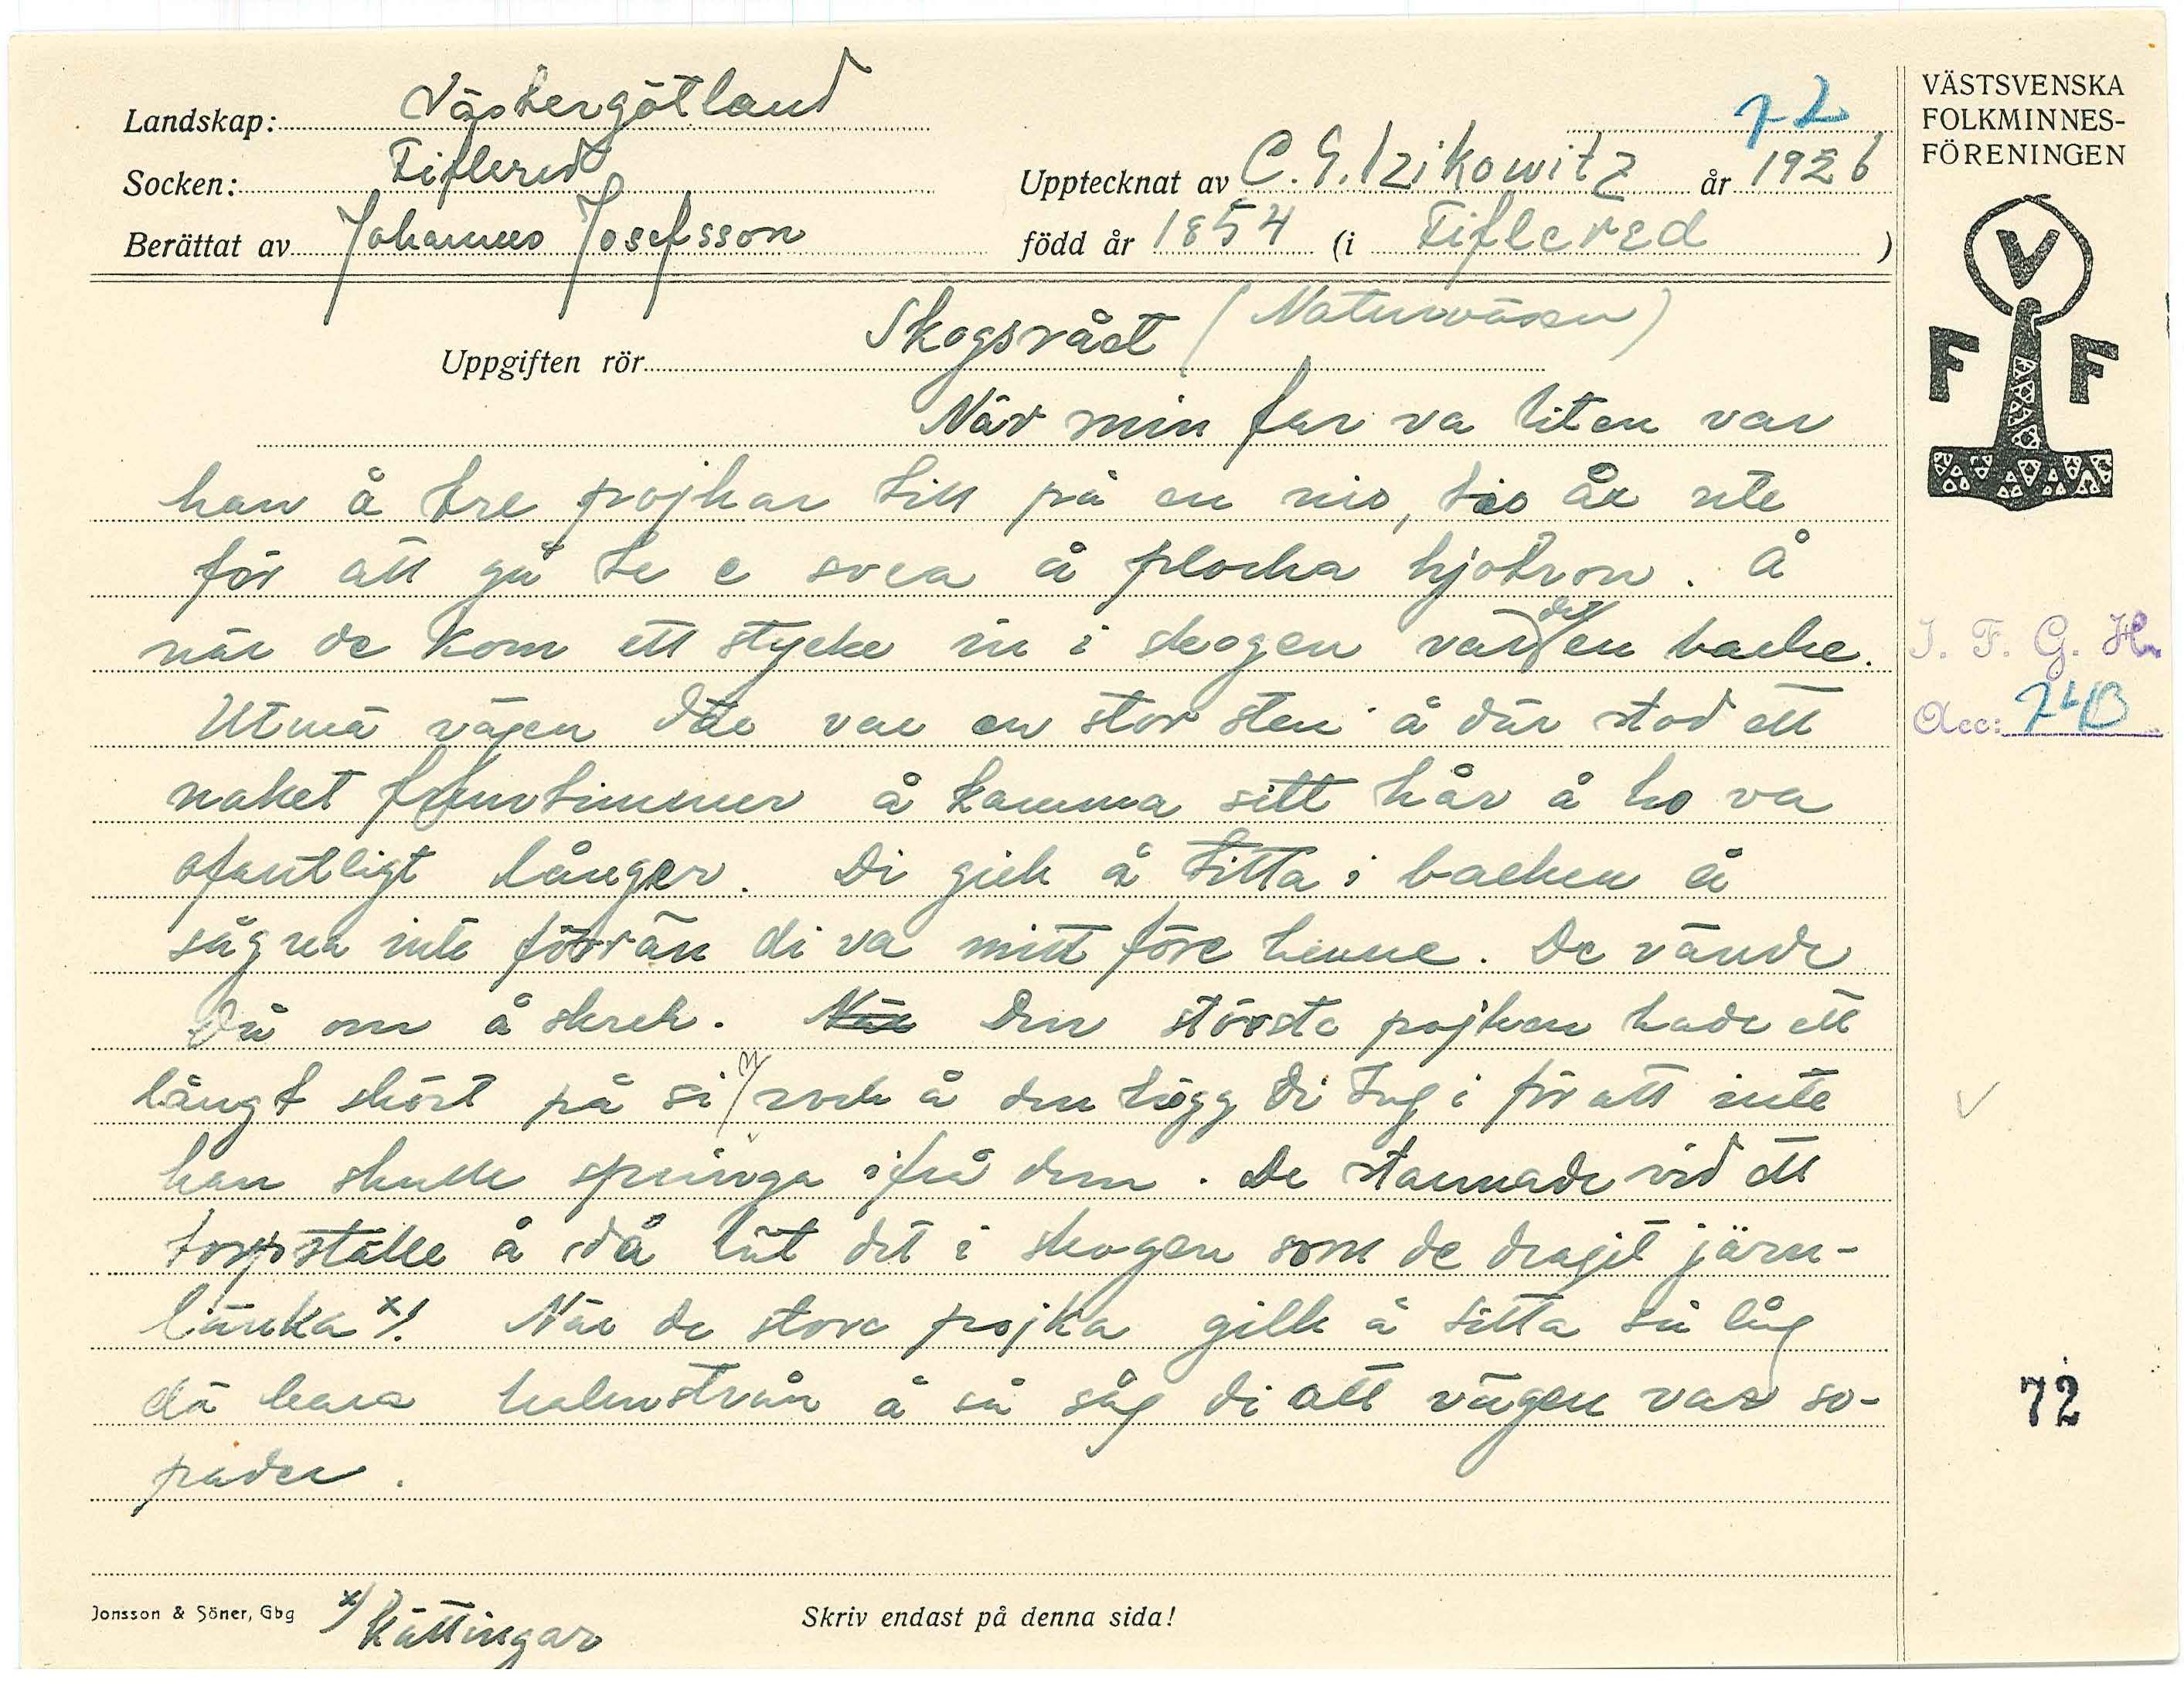 Landskap: Västergötland
Socken: Tiflered
Berättat av Johannes Josefsson
72
Upptecknat av C.G. Izikowitz år 1926
född år 1854 (i Tiflered )
VÄSTSVENSKA
FOLKMINNES-
FÖRENINGEN
V
F F
Uppgiften rör Skogsrået (Naturväsen)
När min far va liten var
han å tre pojkar till på en nio, tio år ute
för att gå te e svea å plocka hjotron. Å
när de kom ett stycke in i skogen var det en backe.
Utmä vägen där var en stor sten å där stod ett
naket fruntimmer å kamma sitt hår å ho va
ofantligt långer. Di gick å titta i backen å
såg na inte förrän di va mitt före henne. De vände
då om å skrek. När Den största pojken hade ett
långt skört på si rock å den högg di tag i för att inte
han skulle springa ifrå dem. De stannade vid ett
torpställe å då lät det i skogen som de dragit järn-
länka x). När de store pojka gick å titta så låg
dä bara halmstrån å så såg di att vägen var so-
pader.
Jonsson & Söner, Gbg
x) Kättingar
Skriv endast på denna sida!
I. F. G. H.
Acc: 24B
72